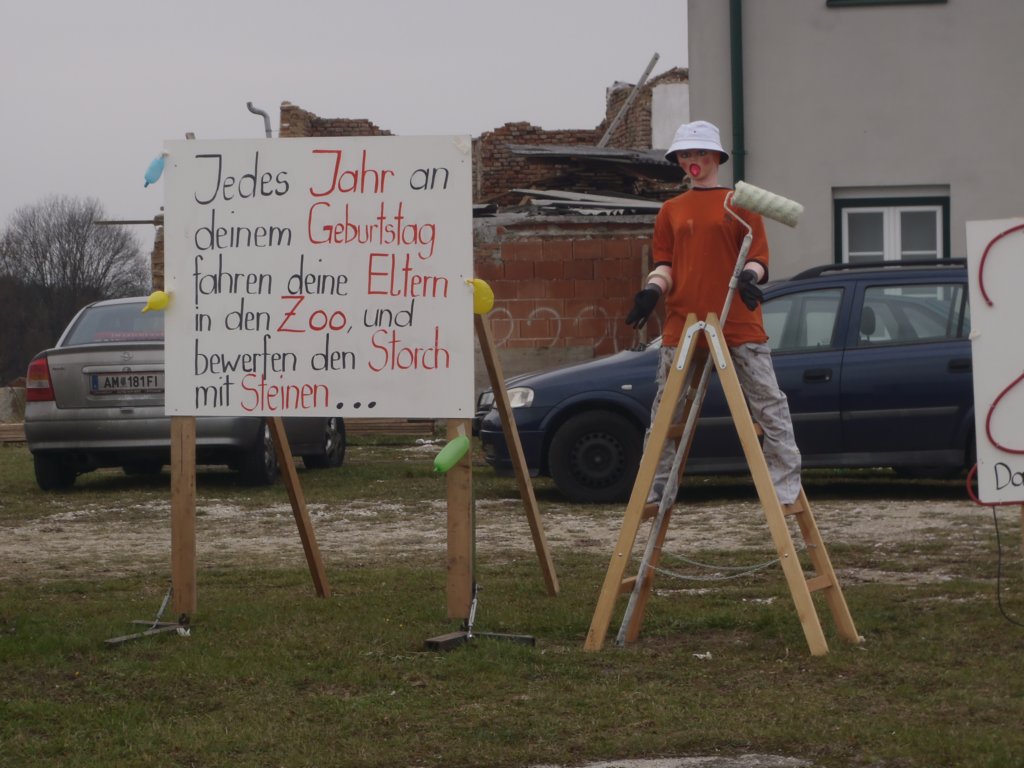 Jedes Jahr an
deinem Geburtstag
fahren deine Eltern
in den Zoo, und
bewerfen den Storch
mit Steinen...
AM 181FI